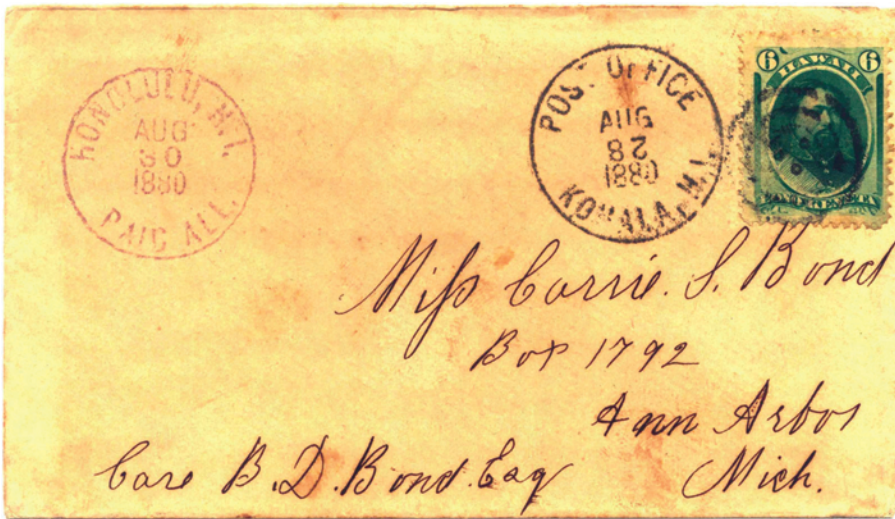 HONOLULU, H.I.
AUG
30
1880
PAID ALL.
POST OFFICE
AUG
82
1880
KOHALA, H.I.
6 6
HAWAII
Miss Carrie. S. Bond
Box 1792
Ann Arbor
Mich.
Care B. D. Bond. Esq